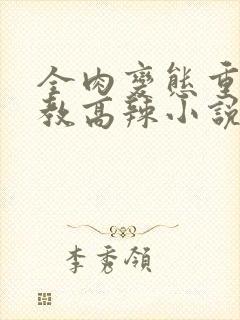 全肉變態重
教高辣小說
李秀領